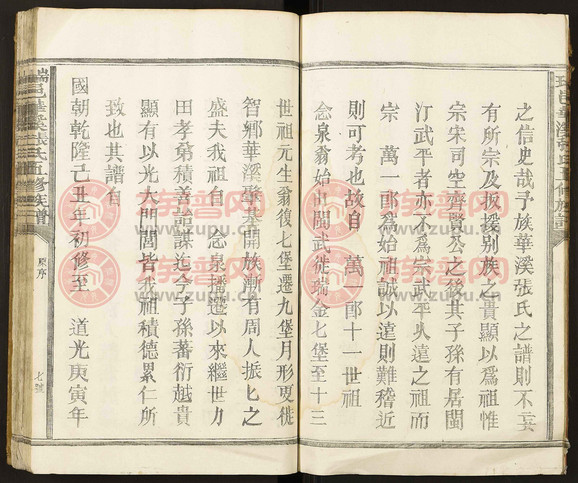 之信史哉予族華溪張氏之譜則不妄
有所宗及扳援別族之貴顯以爲祖惟
宗宋司空齊賢公之後其子孫有居閩
汀武平者亦不爲宗武平人遠之祖而
宗 萬一郎爲始祖誠以遠則難稽近
則可考也故自 萬一郎十一世祖
念泉翁始出閩武徙瑞金七堡至十三
世祖元生翁復七堡遷九堡月形更徙
智鄉華溪擎基開族漸有周人振起之
盛夫我祖自 念泉播遷以來繼世力
田孝弟積善詒謀迄今子孫蕃衍越貴
顯有以光大門閭皆我祖積德累仁所
致也其譜自
國朝乾隆己丑年初修至 道光庚寅年
瑞邑華溪張氏五修族譜
原序
七號
瑞邑華溪張氏五修族譜
族譜网
www.zupu.cn
族譜网
www.zupu.cn
族譜网
www.zupu.cn
族譜网
www.zupu.cn